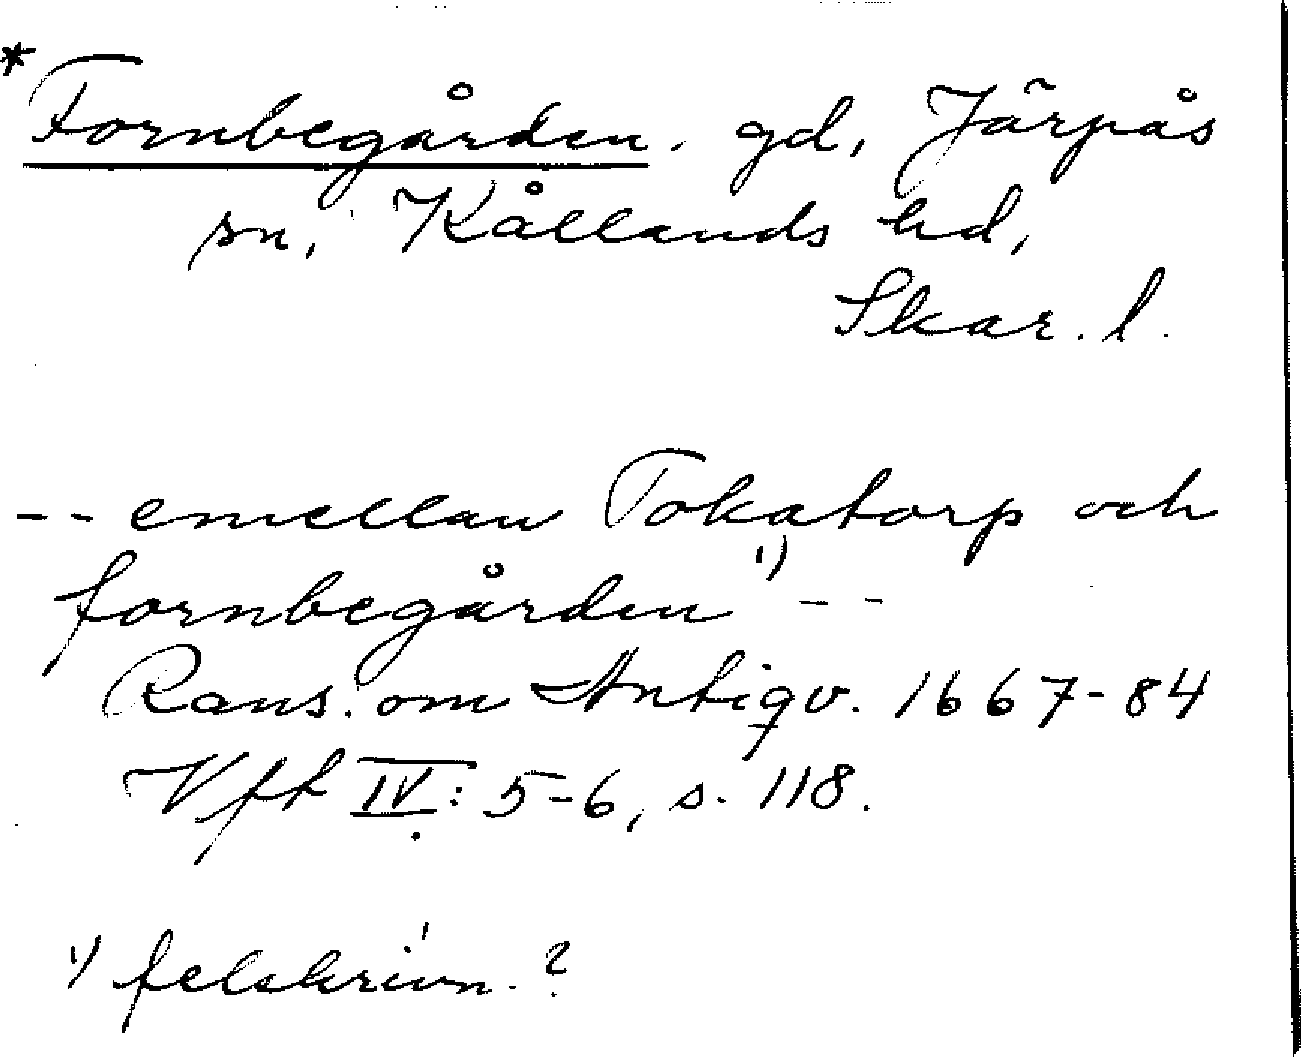 *Fornbegården. gd, Järpås
sn, Kållands hd,
Skar. l.
-- emellan Tokatorp och
fornbegården 1) --
Rans. om Antiqv. 1667-84
Vff IV: 5-6, s. 118.
1) felskrivn. ?